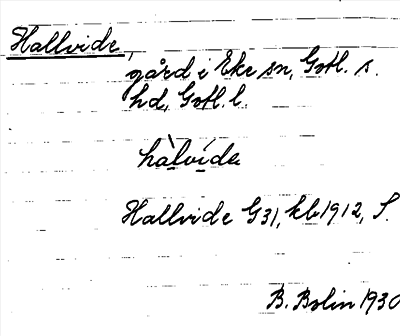 Hallvide,
gård i Eke sn, Gotl. s.
hd, Gotl. l.
hàlvídα
Hallvide G31, kb 1912, S.
B. Bolin 1930